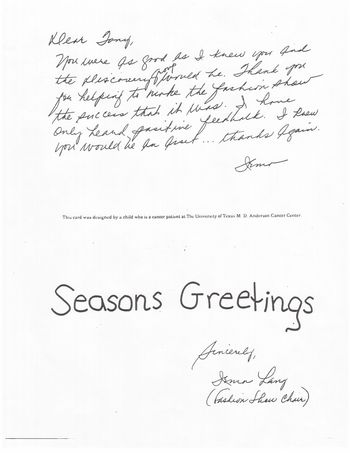 Dear Tony,
You were as good as I knew you and
the Discovery would be. Thank you
for helping to make the fashion show
the success that it was. I have
only heard positive feedback. I knew
you would be an asset... thanks again.
Isma
This card was designed by a child who is a cancer patient at The University of Texas M. D. Anderson Cancer Center.
Seasons Greetings
Sincerely,
Isma Lang
(Fashion Show Chair)